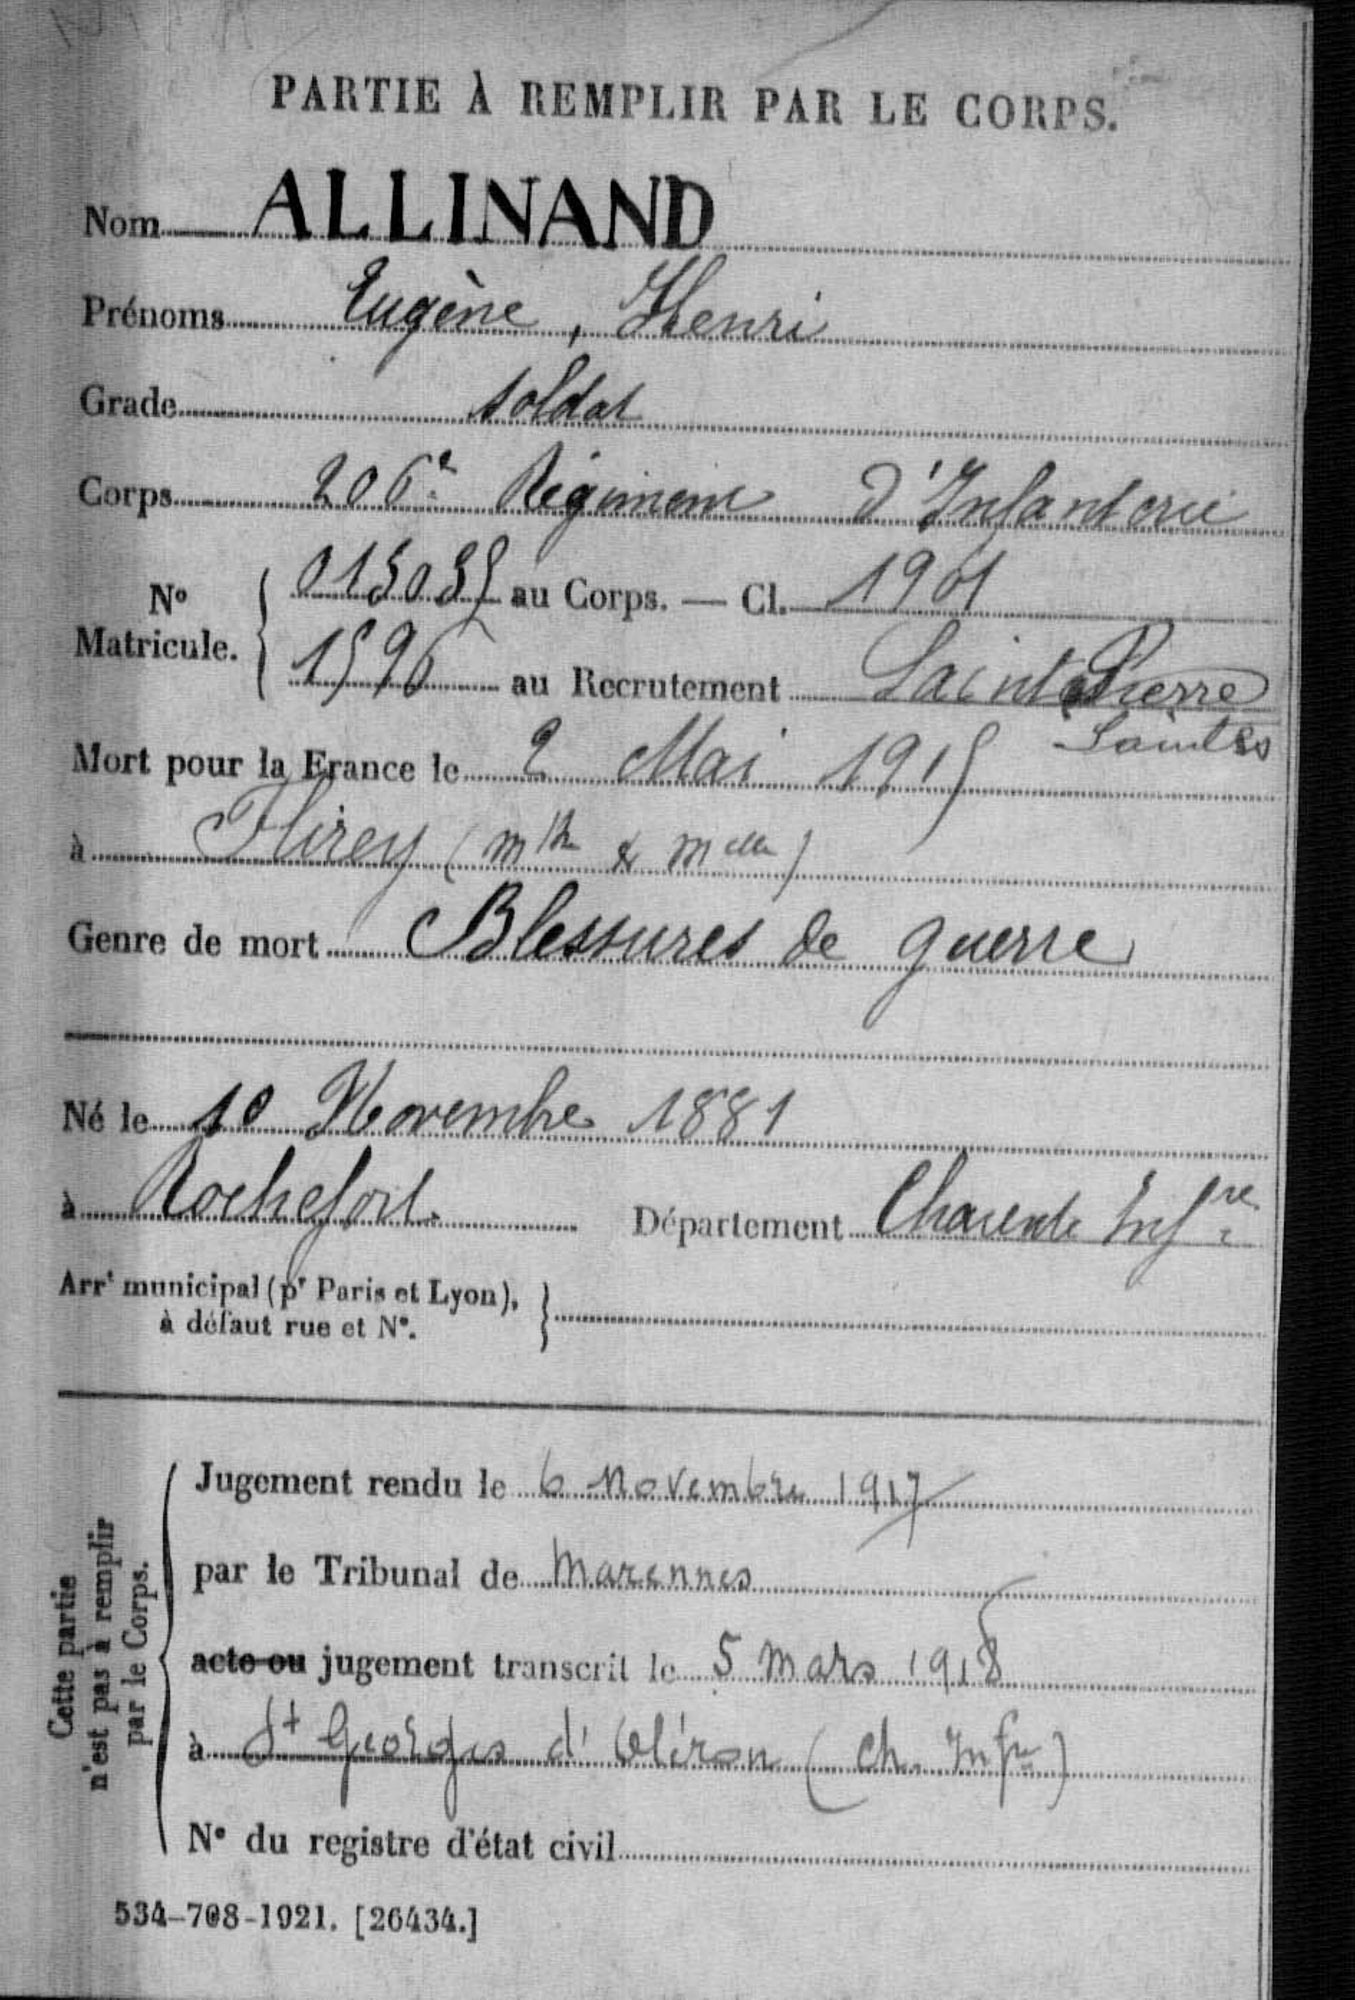 PARTIE À REMPLIR PAR LE CORPS.
Nom ALLINAND
Prénoms Eugène, Henri
Grade soldat
Corps 206e Régiment d'Infanterie
No Matricule. { 015035 au Corps. — Cl. 1901
1596 au Recrutement Saint Pierre
Saintes
Mort pour la France le 2 Mai 1915
à Flirey (mthe & melle)
Genre de mort Blessures de guerre
Né le 10 Novembre 1881
à Rochefort. Département Charente Infre
Arrt municipal (pr Paris et Lyon), à défaut rue et N°. }
Cette partie n'est pas à remplir par le Corps.
Jugement rendu le 6 Novembre 1917
par le Tribunal de Marennes
acte ou jugement transcrit le 5 mars 1918
à St Georges d'Oléron (Ch. Infre)
N° du registre d'état civil
534-708-1921. [26434.]